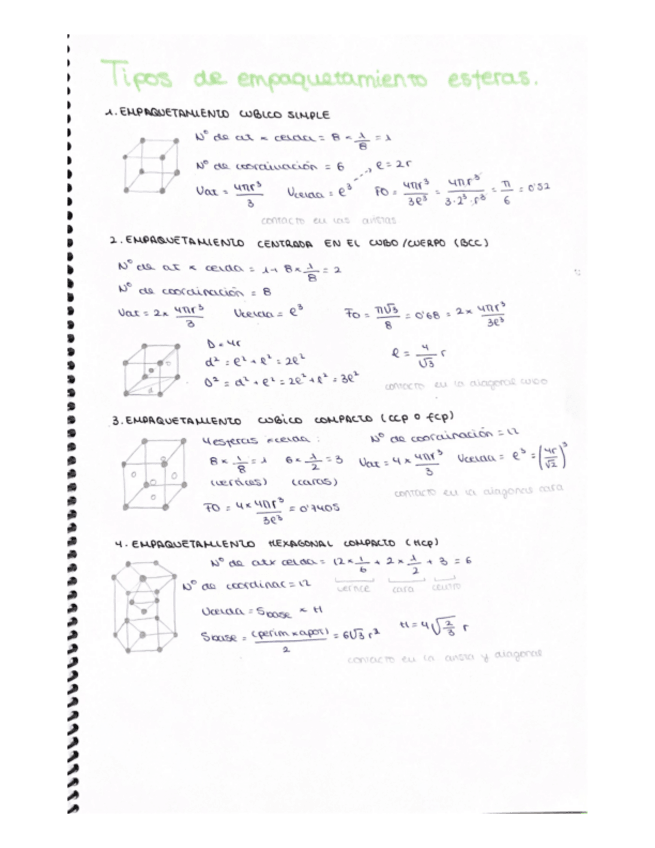 Tipos de empaquetamiento esferas.
1. EMPAQUETAMIENTO CUBICO SIMPLE
Nº de at x celda = 8 x 1/8 = 1
Nº de coordinación = 6 → l = 2r
Vat = 4πr³/3 Vcelda = l³ FO = 4πr³/3l³ = 4πr³/3·2³·r³ = π/6 = 0'52
contacto en las aristas
2. EMPAQUETAMIENTO CENTRADA EN EL CUBO/CUERPO (BCC)
Nº de at x celda = 1 + 8 x 1/8 = 2
Nº de coordinación = 8
Vat = 2 x 4πr³/3 Vcelda = l³ FO = π√3/8 = 0'68 = 2 x 4πr³/3l³
D = 4r
d² = l² + l² = 2l² l = 4/√3 r
D² = d² + l² = 2l² + l² = 3l² contacto en la diagonal cubo
3. EMPAQUETAMIENTO CUBICO COMPACTO (CCP o fcp)
4 esferas x celda: Nº de coordinación = 12
8 x 1/8 = 1 6 x 1/2 = 3 Vat = 4 x 4πr³/3 Vcelda = l³ = (4r/√2)³
(vertices) (caras) contacto en la diagonal cara
FO = 4 x 4πr³/3l³ = 0'7405
4. EMPAQUETAMIENTO HEXAGONAL COMPACTO (HCP)
Nº de at x celda = 12 x 1/6 + 2 x 1/2 + 3 = 6
Nº de coordinac = 12 vertice cara centro
Vcelda = Sbase x H
Sbase = (perim x apot)/2 = 6√3 r² H = 4√(2/3) r
contacto en la arista y diagonal